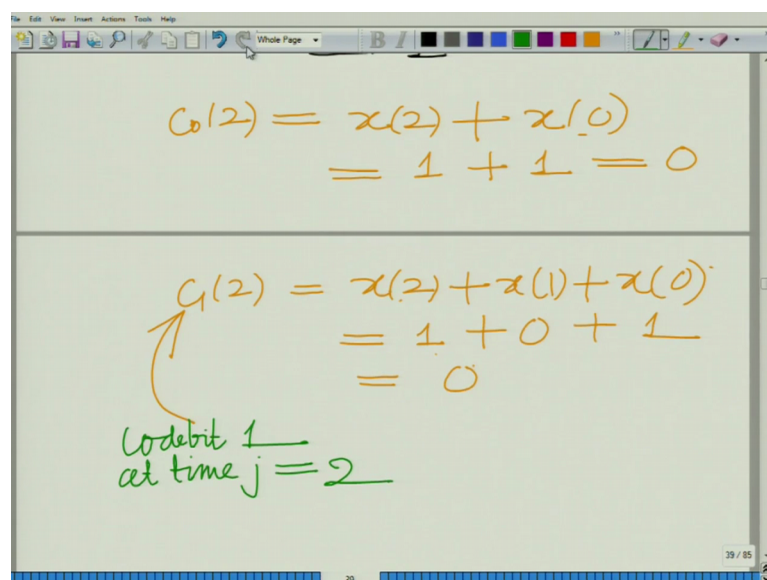 File Edit View Insert Actions Tools Help
Whole Page B I
C₀(2) = x(2) + x(0)
= 1 + 1 = 0
C₁(2) = x(2) + x(1) + x(0)
= 1 + 0 + 1
= 0
codebit 1
at time j = 2
39 / 85
39